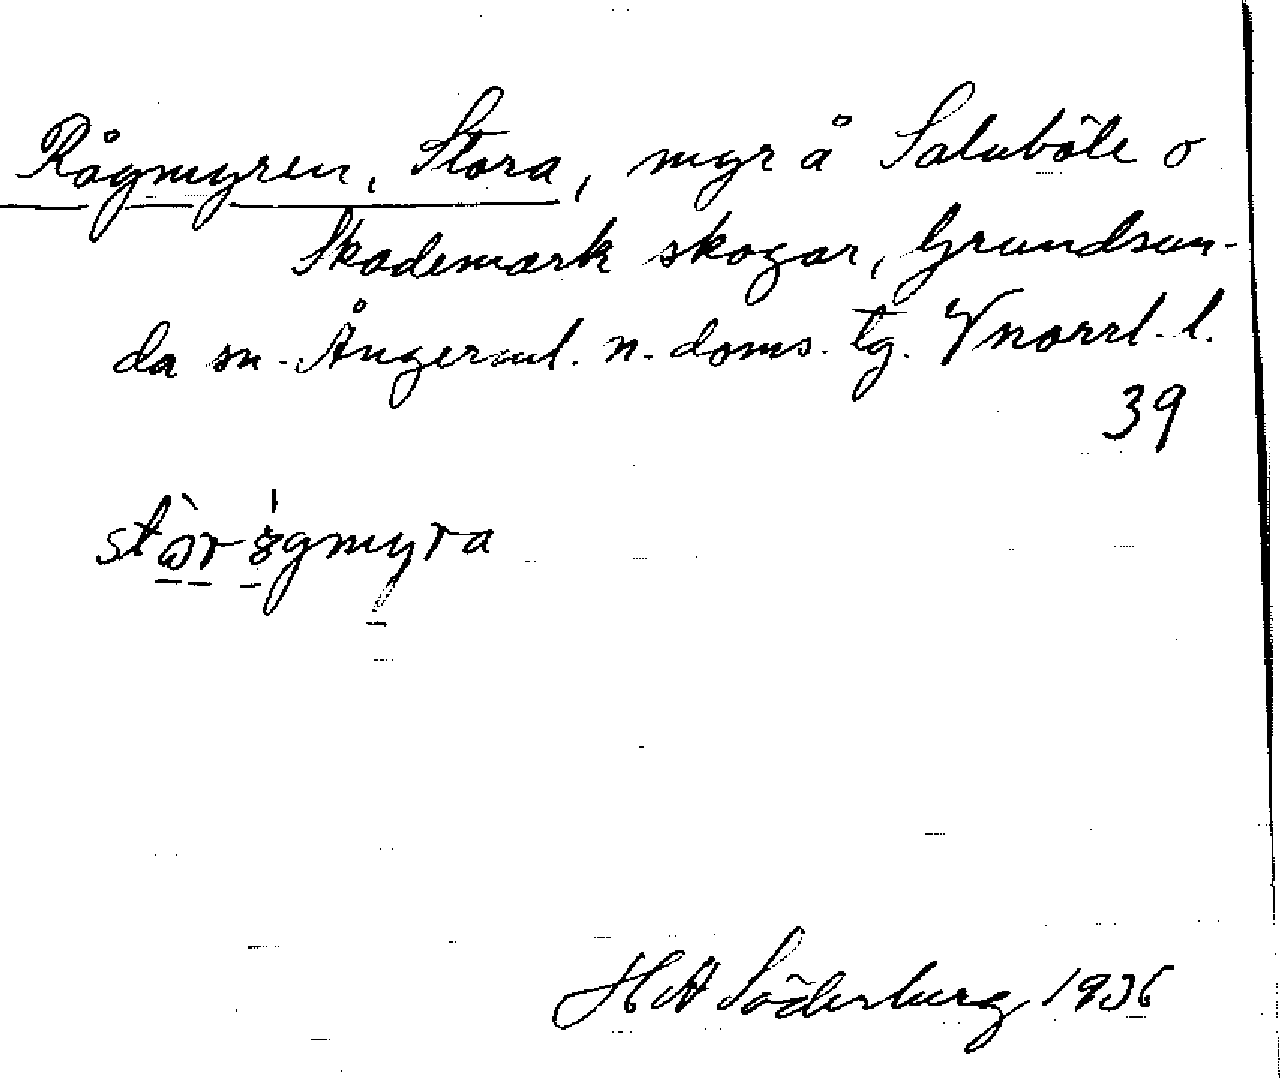 Rågmyren, Stora, myr å Saluböle o
Skademark skogar, Grundsun-
da sn. Ångerml. n. doms. tg. Vnorrl. l.
39
H A Söderberg 1936